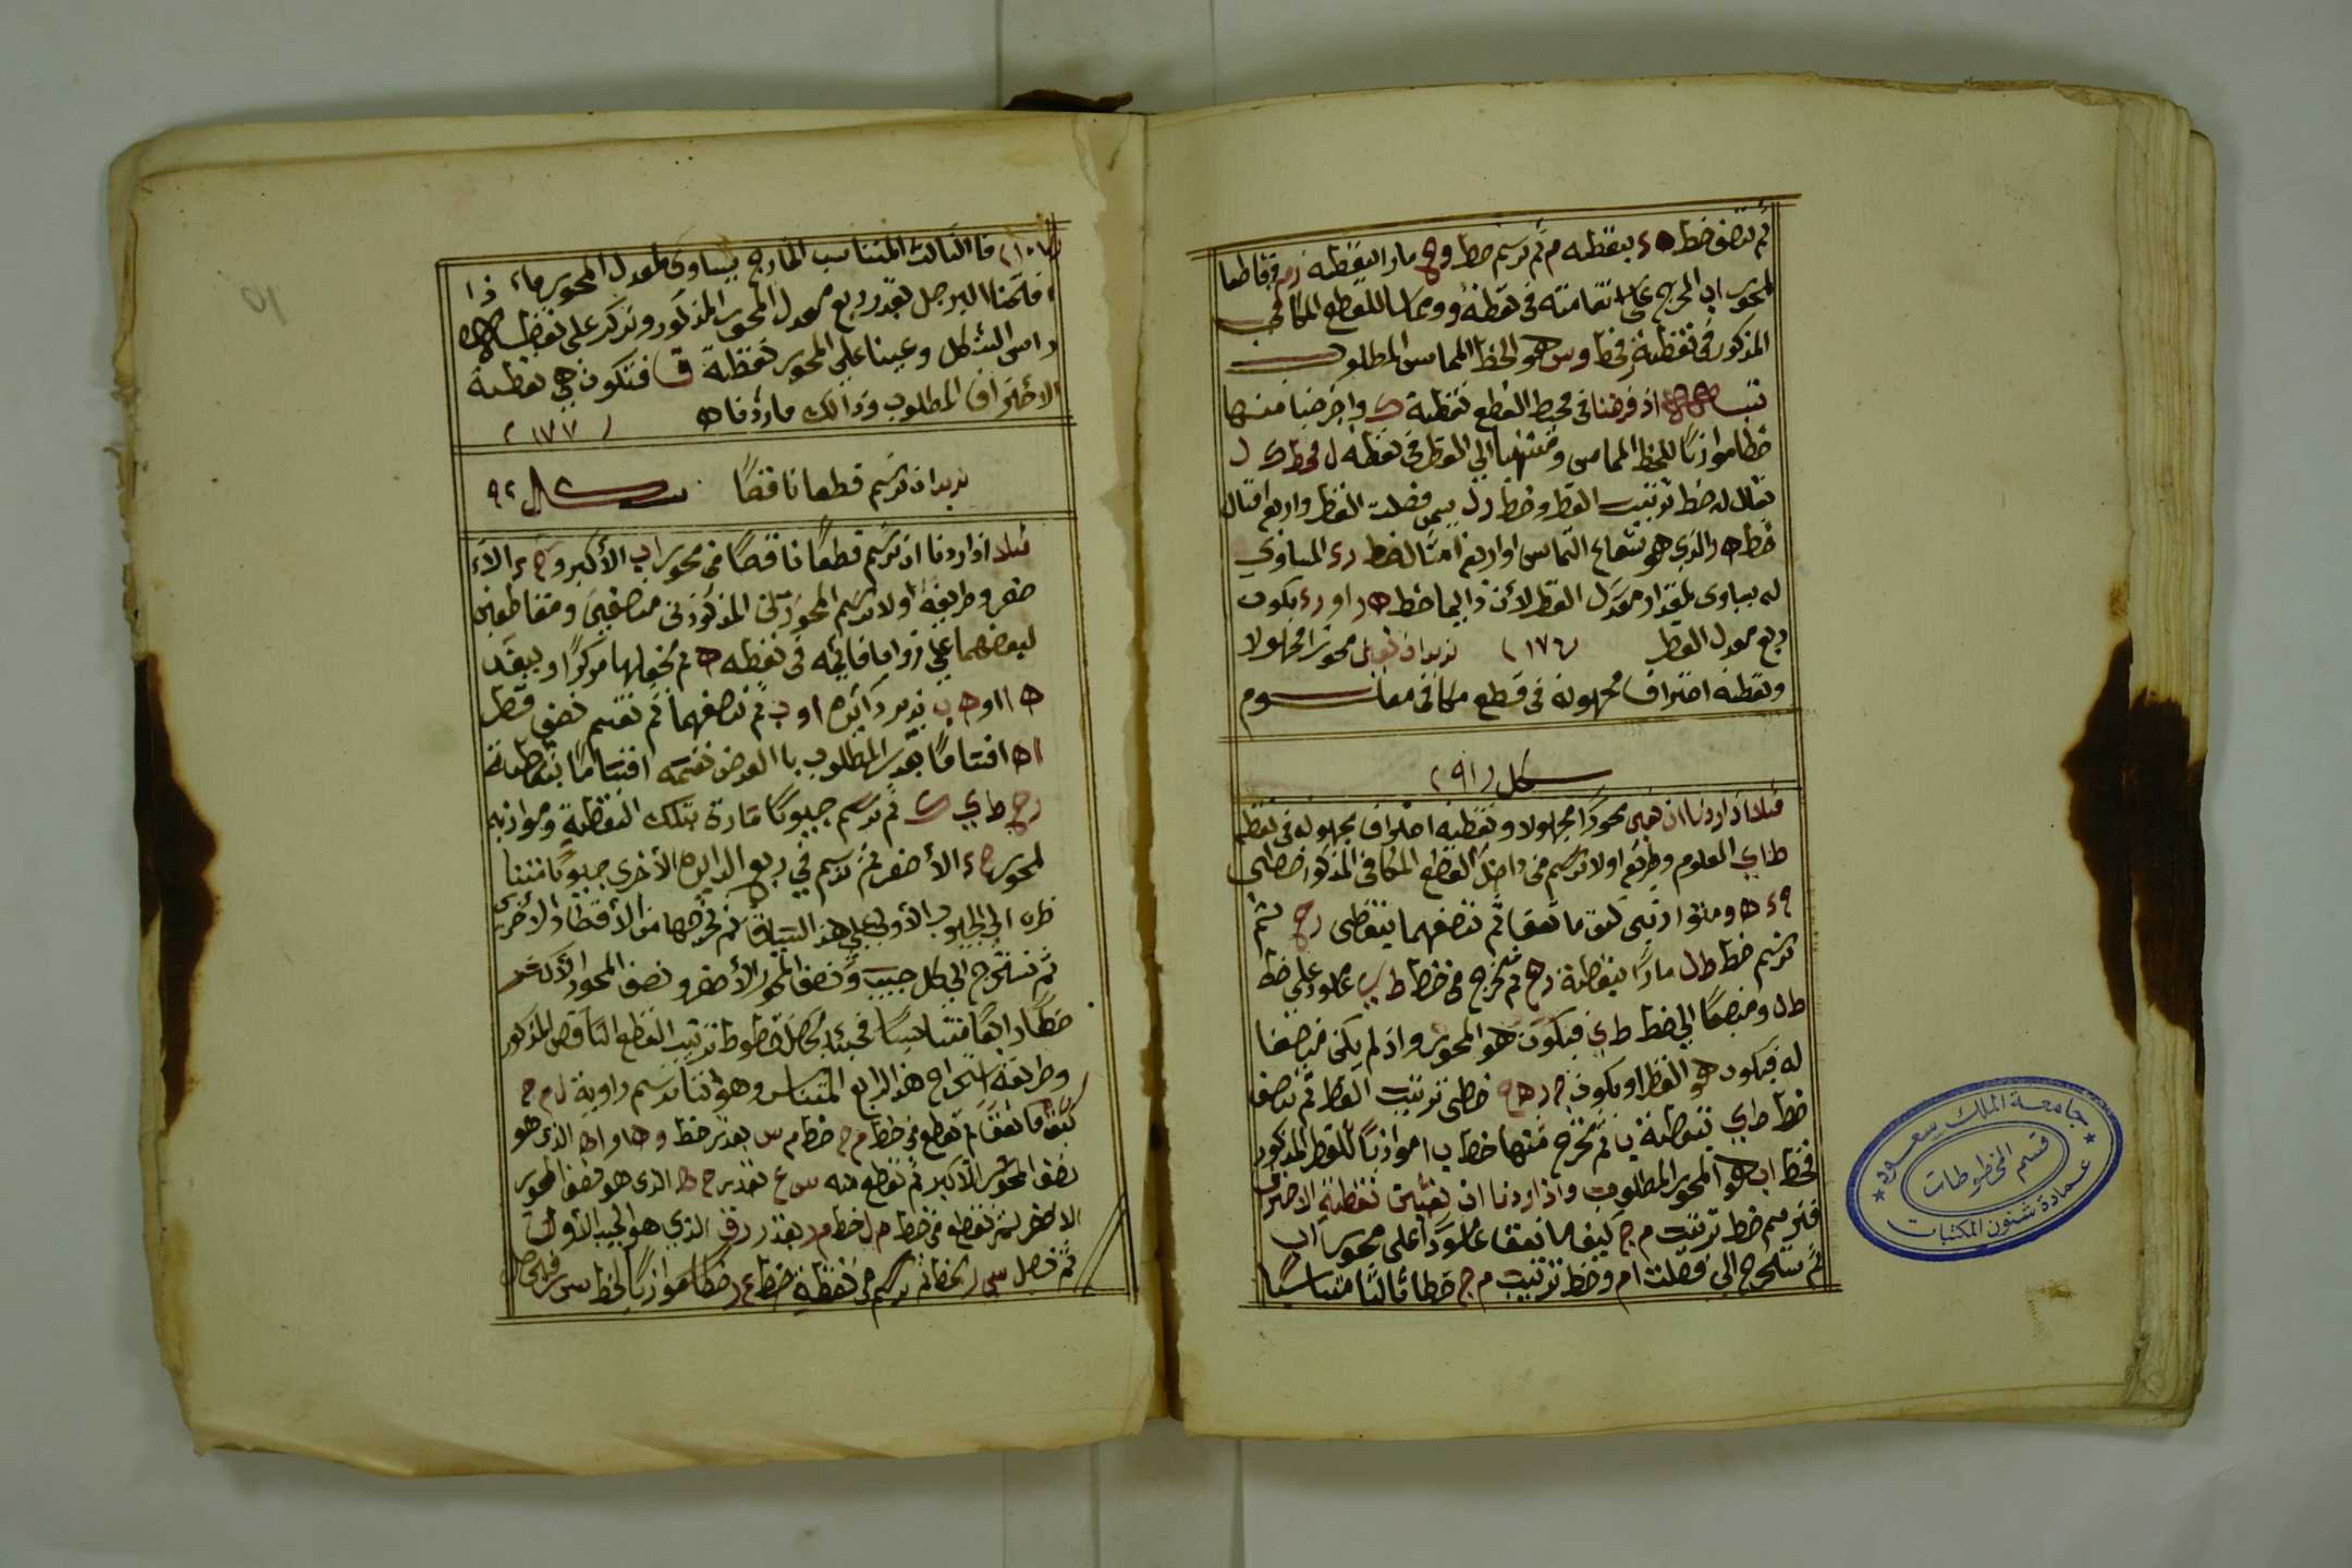 ثم ننصف خط ه د بنقطه م ثم نرسم خط و ح مارا بنقطة ر م وقاطعا
لمحور اب المخرج على استقامته في نقطة و ومماسا للقطع المكافي
المذكور في نقطة ر فخط و س هو الخط المماس المطلوب
تنبيه اذ فرضنا في محيط القطع نقطة ك واخرجنا منها
خطا موازيًا للخط المماس ومنتهيا الي القطر في نقطة ل فخط ك ل
يقال له خط ترتيب القطر وخط ر ل يسمى فضلت القطر واربع امثال
خط ه ر الذي هو شعاع التماس او اربع امثال لخط ر د المساوي
له يساوي لمقدار معدل القطر لأن دايما خط ه ر او ر د يكون
ربع معدل القطر (١٧٦) نريد ان نعين محورا مجهولا
ونقطة احتراق مجهولة في قطع مكافي معلوم
شكل (٩١)
مثلا اذا اردنا ان نعين محورًا مجهولا ونقطة احتراق مجهولة في نقطع
ط ا ي المعلوم وطريقه اولا نرسم في داخل القطع المكافي المذكور خطي
ح د ه و متوازيين كيف ما تفق ثم ننصفهما بنقطتي ر ح ثم
نرسم خط ط ل مارًا بنقطة ر ح ثم نخرج من خط ط ي عمود على خط
ط ل ومنصفا الي خط ط ي فيكون هو المحور واذ لم يكن منصفا
له فيكون هو القطر او يكون ح د ه و خطي ترتيب القطر ثم ننصف
خط ط ي بنقطة ب ثم نخرج منها خط ب ا موازيًا للقطر المذكور
فخط اب هو المحور المطلوب واذا اردنا ان نعين نقطة الاحتراق
فنرسم خط ترتيب م ج كيف ما تفق عمودًا على محور اب
ثم نستخرج الي فضلت ام وخط ترتيب م ج خطا ثالثا متناسبًا
(١٠٧) فا الثالث المتناسب الخارج يساوي لمعدل المحور فاء ذا
فتحنا البرجل بقدر ربع معدل المحور المذكور ونركز على نقطة
راس الشكل وعينا على المحور نقطة ق فتكون هي نقطة
الاحتراق المطلوب وذالك ما ردناه (١٧٧)
نريد ان نرسم قطعا ناقصًا شكل ٩٢
مثلا اذا اردنا ان نرسم قطعًا ناقصًا في محور اب الأكبر و ج د الاء
صغر وطريقة اولا نرسم المحورين المذكورين متناصفين ومتقاطعين
لبعضهما على زوايا قائمه في نقطه ه ثم نجعلها مركزًا وببعد
ه ا او ه ب ندير دائرة ا و ب ثم ننصفهما ثم نقسم نصف قطر
ا ه اقسامًا بقدر المطلوب با الفرض نقسمه اقسامًا بنقاطه
ر ح ط ي ك ثم نرسم جيوبًا مارة بتلك النقطة وموازيه
لمحور ج د الأصغر ثم نرسم في ربع الدايره الأخرى جيوبًا متنا
ظره الي الجيوب الأولى على هذ السياق ثم نخرجها من الأقطار الأخرى
ثم نستخرج الي كل جيب ونصف المحور الأصغر ونصف المحور الأكبر
خطًا رابعًا متناسبًا فحينئذ يحصل خطوط ترتيب القطع الناقص المذكور
وطريقة استخراج هذ الرابع المتناسب وهو اننا نرسم زاوية ل م ج
كيف ما تفق ثم نقطع في خط م ج خط م س بقدر خط و ه او ا ه الذي هو
نصف المحور الأكبر ثم نقطع منه س ع بقدر ج ه الذي هو نصف المحور
الاصغر ثم نقطع في خط م ل خط م ر بقدر ر ق الذي هو الجيب الأول
ثم نصل س ر بخط ثم نرسم من نقطة خط ع ر خطًا موازيًا لخط س ر فيحصل
جامعة الملك سعود
قسم المخطوطات
عمادة شئون المكتبات